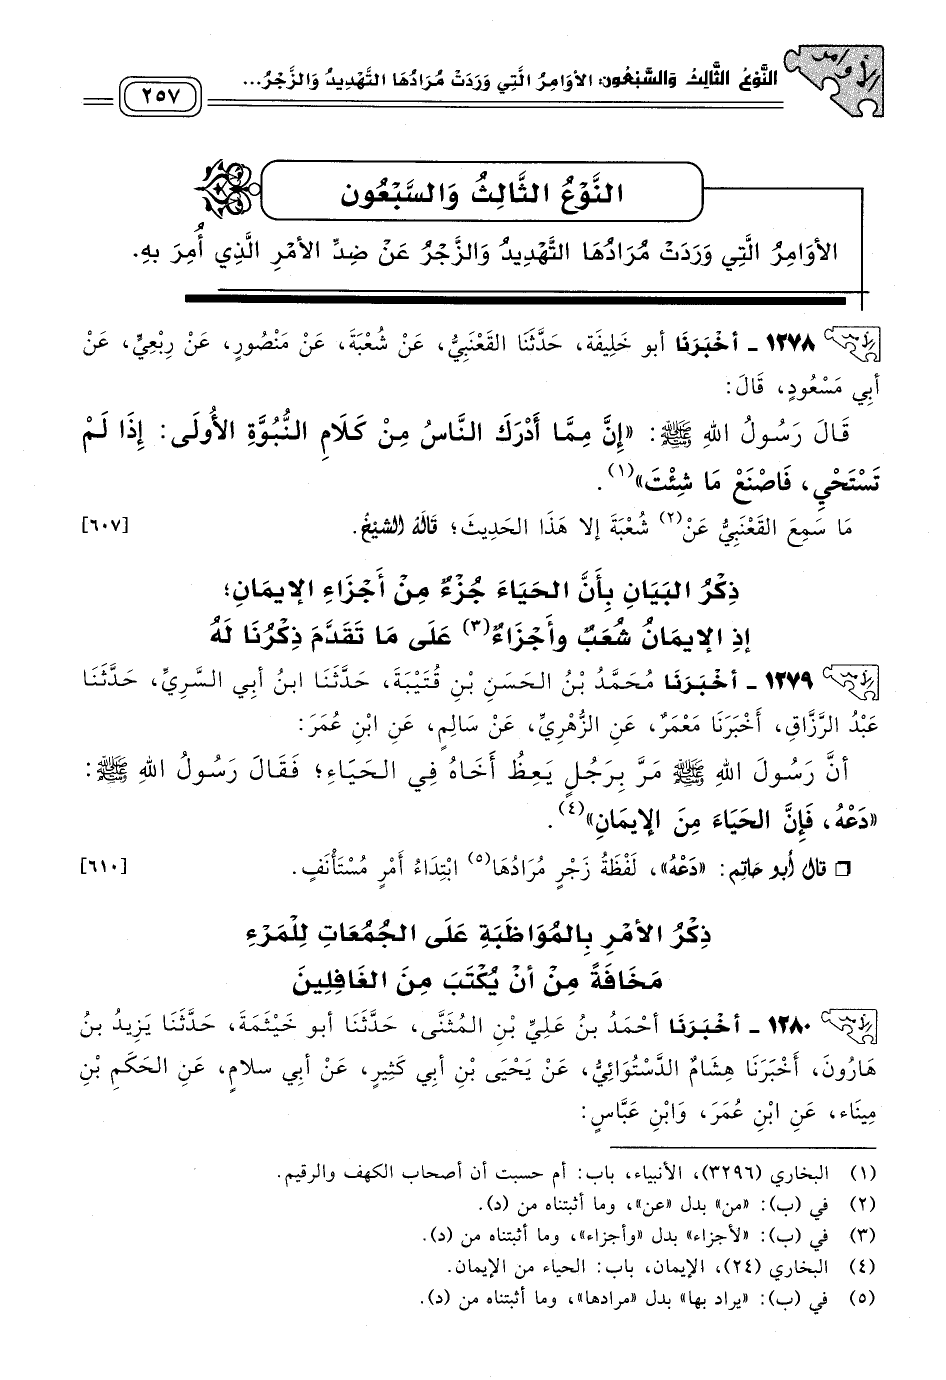 الأوامر
النَّوْعُ الثَّالِثُ وَالسَّبْعُون: الأوَامِرُ الَّتِي وَرَدَتْ مُرَادُهَا التَّهْدِيدُ وَالزَّجْرُ...
٢٥٧
النَّوْعُ الثَّالِثُ وَالسَّبْعُون
الأوَامِرُ الَّتِي وَرَدَتْ مُرَادُهَا التَّهْدِيدُ وَالزَّجْرُ عَنْ ضِدِّ الأمْرِ الَّذِي أُمِرَ بِهِ.
١٢٧٨ - أخْبَرَنَا أبو خَلِيفَة، حَدَّثَنَا القَعْنَبِيُّ، عَنْ شُعْبَةَ، عَنْ مَنْصُورٍ، عَنْ رِبْعِيٍّ، عَنْ
أبِي مَسْعُودٍ، قَالَ:
قَالَ رَسُولُ اللهِ ﷺ: «إِنَّ مِمَّا أَدْرَكَ النَّاسُ مِنْ كَلَامِ النُّبُوَّةِ الأُولَى: إِذَا لَمْ
تَسْتَحْيِ، فَاصْنَعْ مَا شِئْتَ»(١).
مَا سَمِعَ القَعْنَبِيُّ عَنْ(٢) شُعْبَةَ إلا هَذَا الحَدِيثَ؛ قَالَهُ الشَّيْخُ. [٦٠٧]
ذِكْرُ البَيَانِ بِأَنَّ الحَيَاءَ جُزْءٌ مِنْ أَجْزَاءِ الإيمَانِ؛
إذِ الإيمَانُ شُعَبٌ وأَجْزَاءٌ(٣) عَلَى مَا تَقَدَّمَ ذِكْرُنَا لَهُ
١٢٧٩ - أخْبَرَنَا مُحَمَّدُ بْنُ الحَسَنِ بْنِ قُتَيْبَةَ، حَدَّثَنَا ابنُ أبي السَّرِيِّ، حَدَّثَنَا
عَبْدُ الرَّزَّاقِ، أَخْبَرَنَا مَعْمَرٌ، عَنِ الزُّهْرِيِّ، عَنْ سَالِمٍ، عَنِ ابْنِ عُمَرَ:
أنَّ رَسُولَ اللهِ ﷺ مَرَّ بِرَجُلٍ يَعِظُ أَخَاهُ فِي الحَيَاءِ؛ فَقَالَ رَسُولُ اللهِ ﷺ:
«دَعْهُ، فَإِنَّ الحَيَاءَ مِنَ الإيمَانِ»(٤).
❒ قال أبو حاتِم: «دَعْهُ»، لَفْظَةُ زَجْرٍ مُرَادُهَا(٥) ابْتِدَاءُ أمْرٍ مُسْتَأْنَفٍ. [٦١٠]
ذِكْرُ الأمْرِ بِالمُوَاظَبَةِ عَلَى الجُمُعَاتِ لِلْمَرْءِ
مَخَافَةً مِنْ أنْ يُكْتَبَ مِنَ الغَافِلِينَ
١٢٨٠ - أخْبَرَنَا أحْمَدُ بنُ عَلِيِّ بْنِ المُثَنَّى، حَدَّثَنَا أبو خَيْثَمَةَ، حَدَّثَنَا يَزِيدُ بنُ
هَارُونَ، أَخْبَرَنَا هِشَامٌ الدَّسْتُوَائِيُّ، عَنْ يَحْيَى بْنِ أبي كَثِيرٍ، عَنْ أبي سلامٍ، عَنِ الحَكَمِ بْنِ
مِينَاء، عَنِ ابْنِ عُمَرَ، وَابْنِ عَبَّاسٍ:
(١) البخاري (٣٢٩٦)، الأنبياء، باب: أم حسبت أن أصحاب الكهف والرقيم.
(٢) في (ب): «من» بدل «عن»، وما أثبتناه من (د).
(٣) في (ب): «لأجزاء» بدل «وأجزاء»، وما أثبتناه من (د).
(٤) البخاري (٢٤)، الإيمان، باب: الحياء من الإيمان.
(٥) في (ب): «يراد بها» بدل «مرادها»، وما أثبتناه من (د).